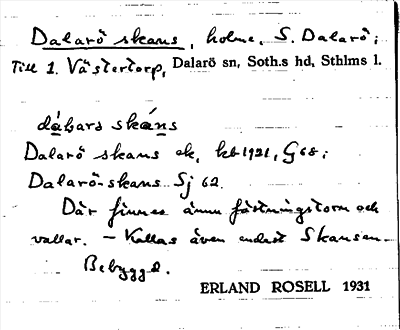 Dalarö skans, holme, S. Dalarö;
Till 1. Västertorp, Dalarö sn, Soth.s hd, Sthlms l.
dábarö skáns
Dalarö skans ek, kb 1921, G68;
Dalarö-skans Sj 62.
Där finnes ännu fästningstorn och
vallar. – Kallas även endast Skansen –
Bebyggd.
ERLAND ROSELL 1931